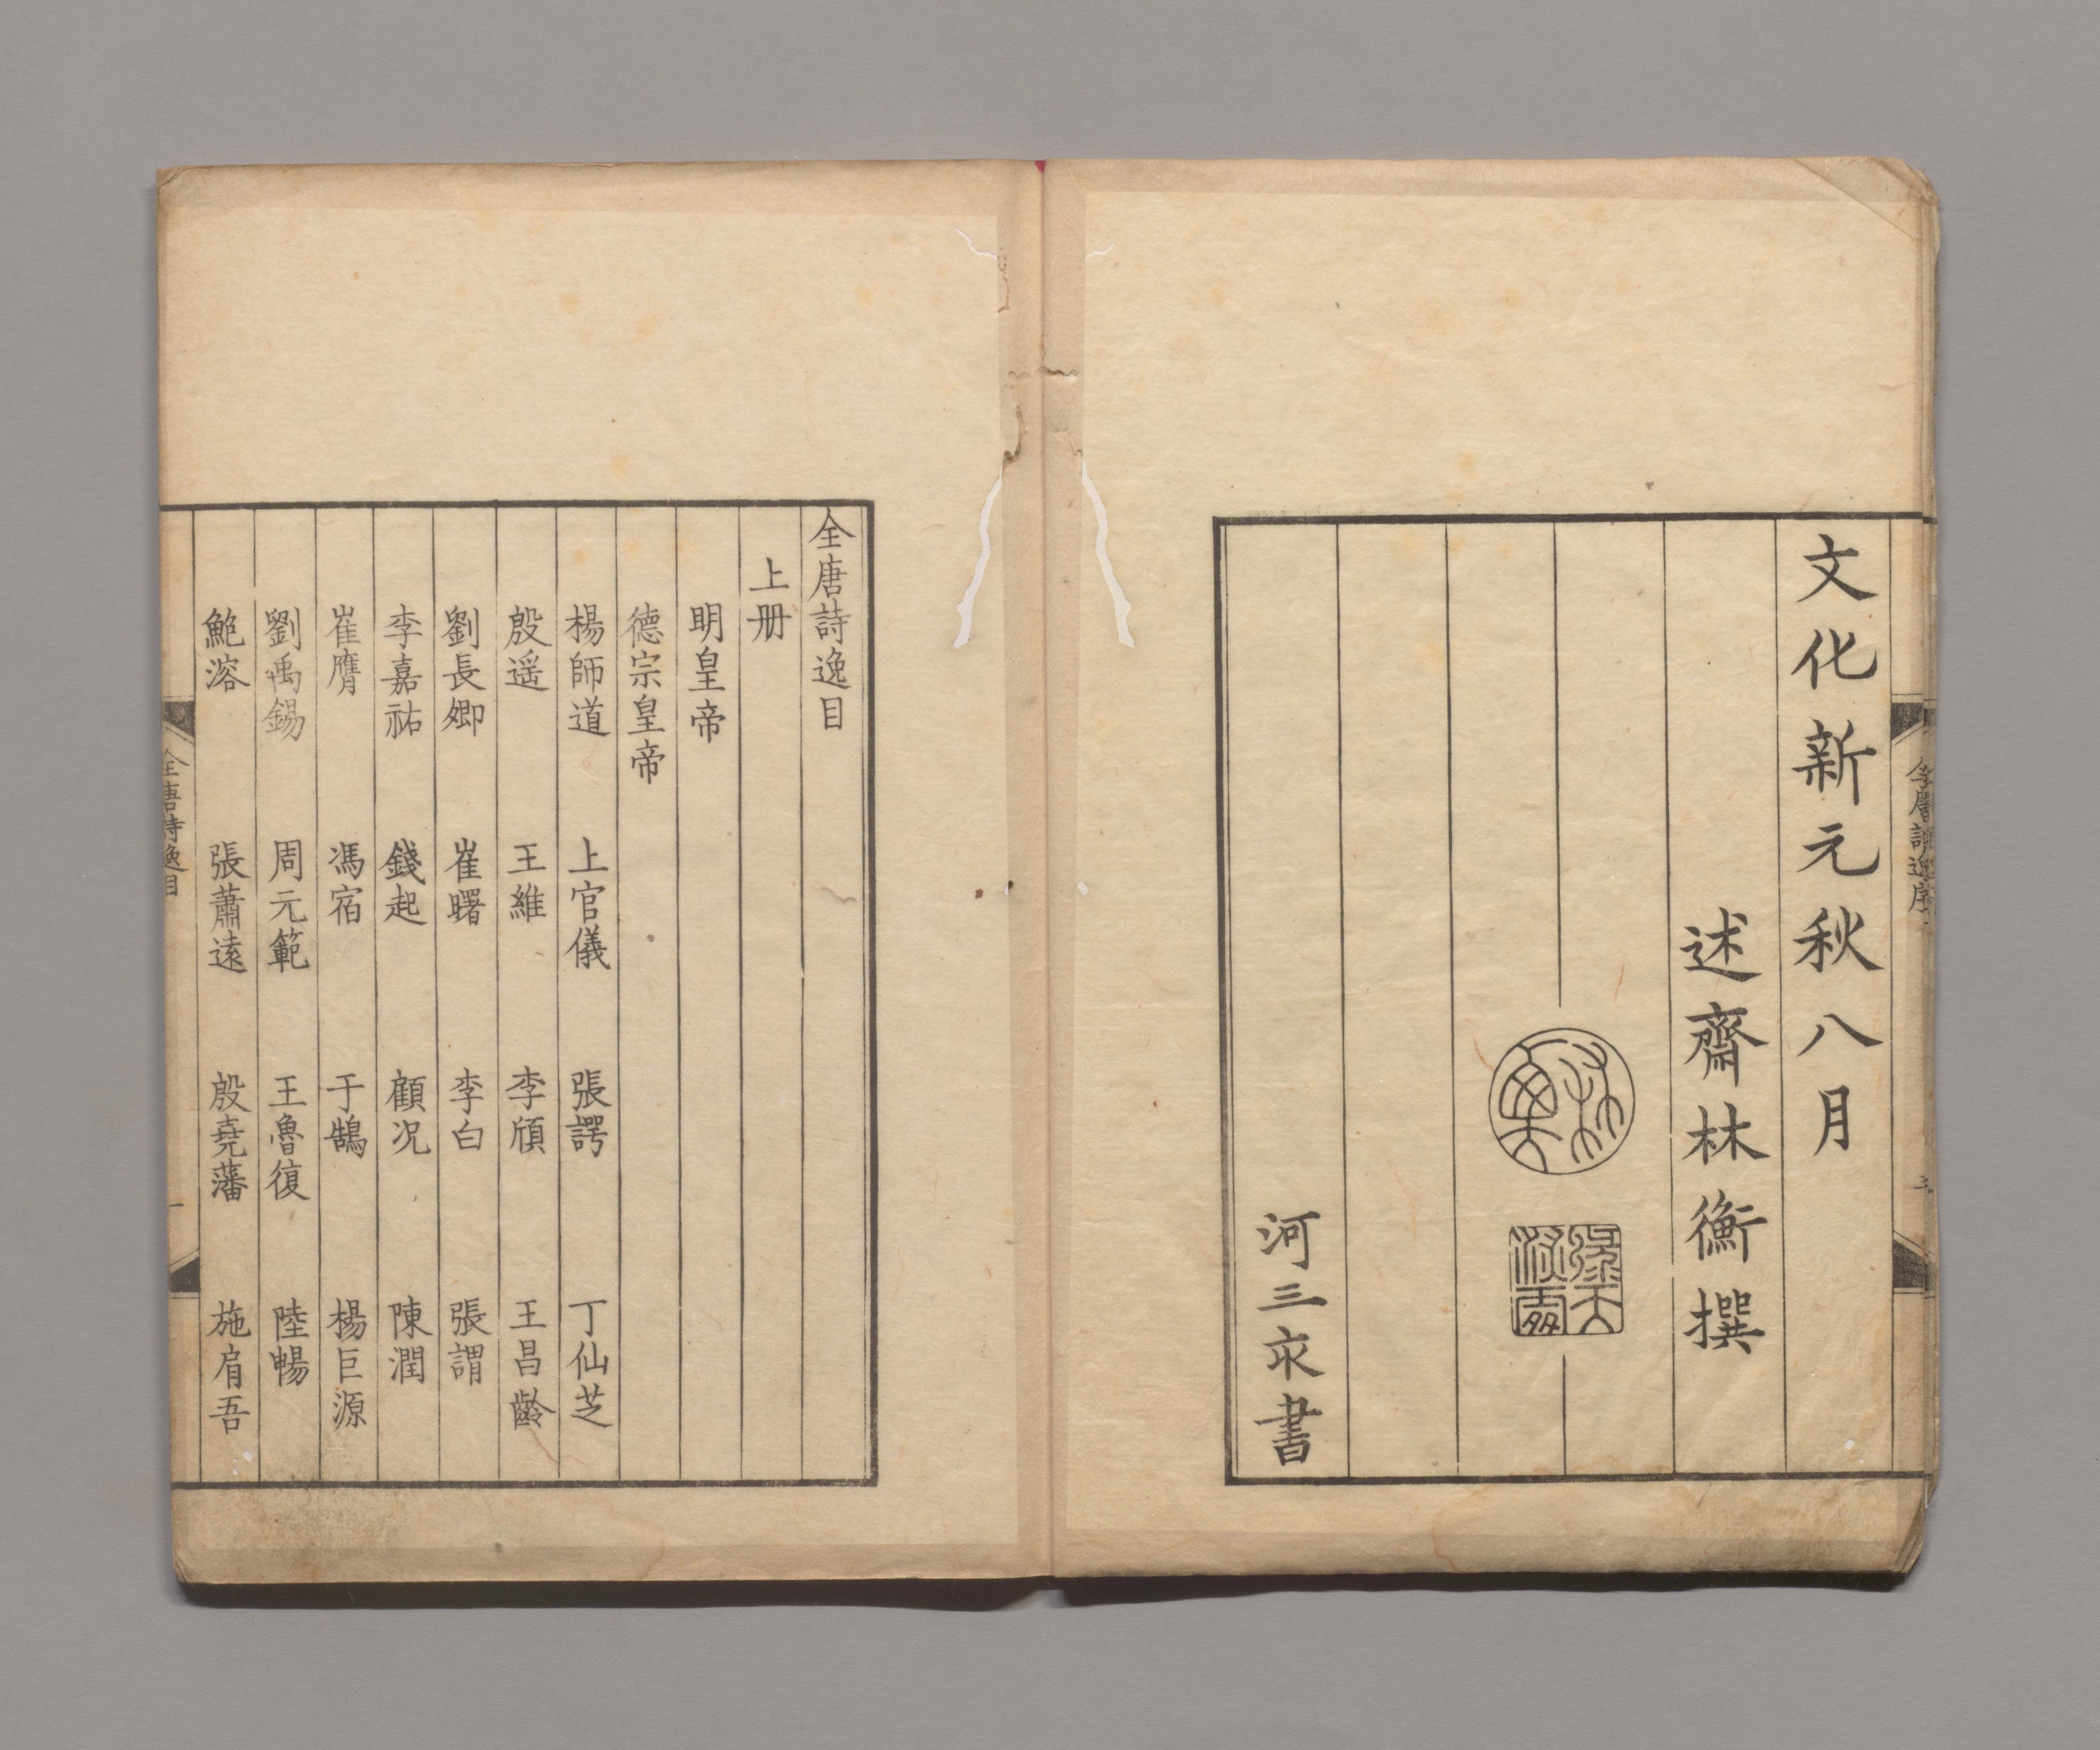 文化新元秋八月
述齋林衡撰
河三亥書
全唐詩逸目
上册
明皇帝
德宗皇帝
楊師道 上官儀 張諤 丁仙芝
殷遥 王維 李頎 王昌齡
劉長卿 崔曙 李白 張謂
李嘉祐 錢起 顧况 陳潤
崔膺 馮宿 于鵠 楊巨源
劉禹錫 周元範 王魯復 陸暢
鮑溶 張蕭遠 殷堯藩 施肩吾
全唐詩逸目
一